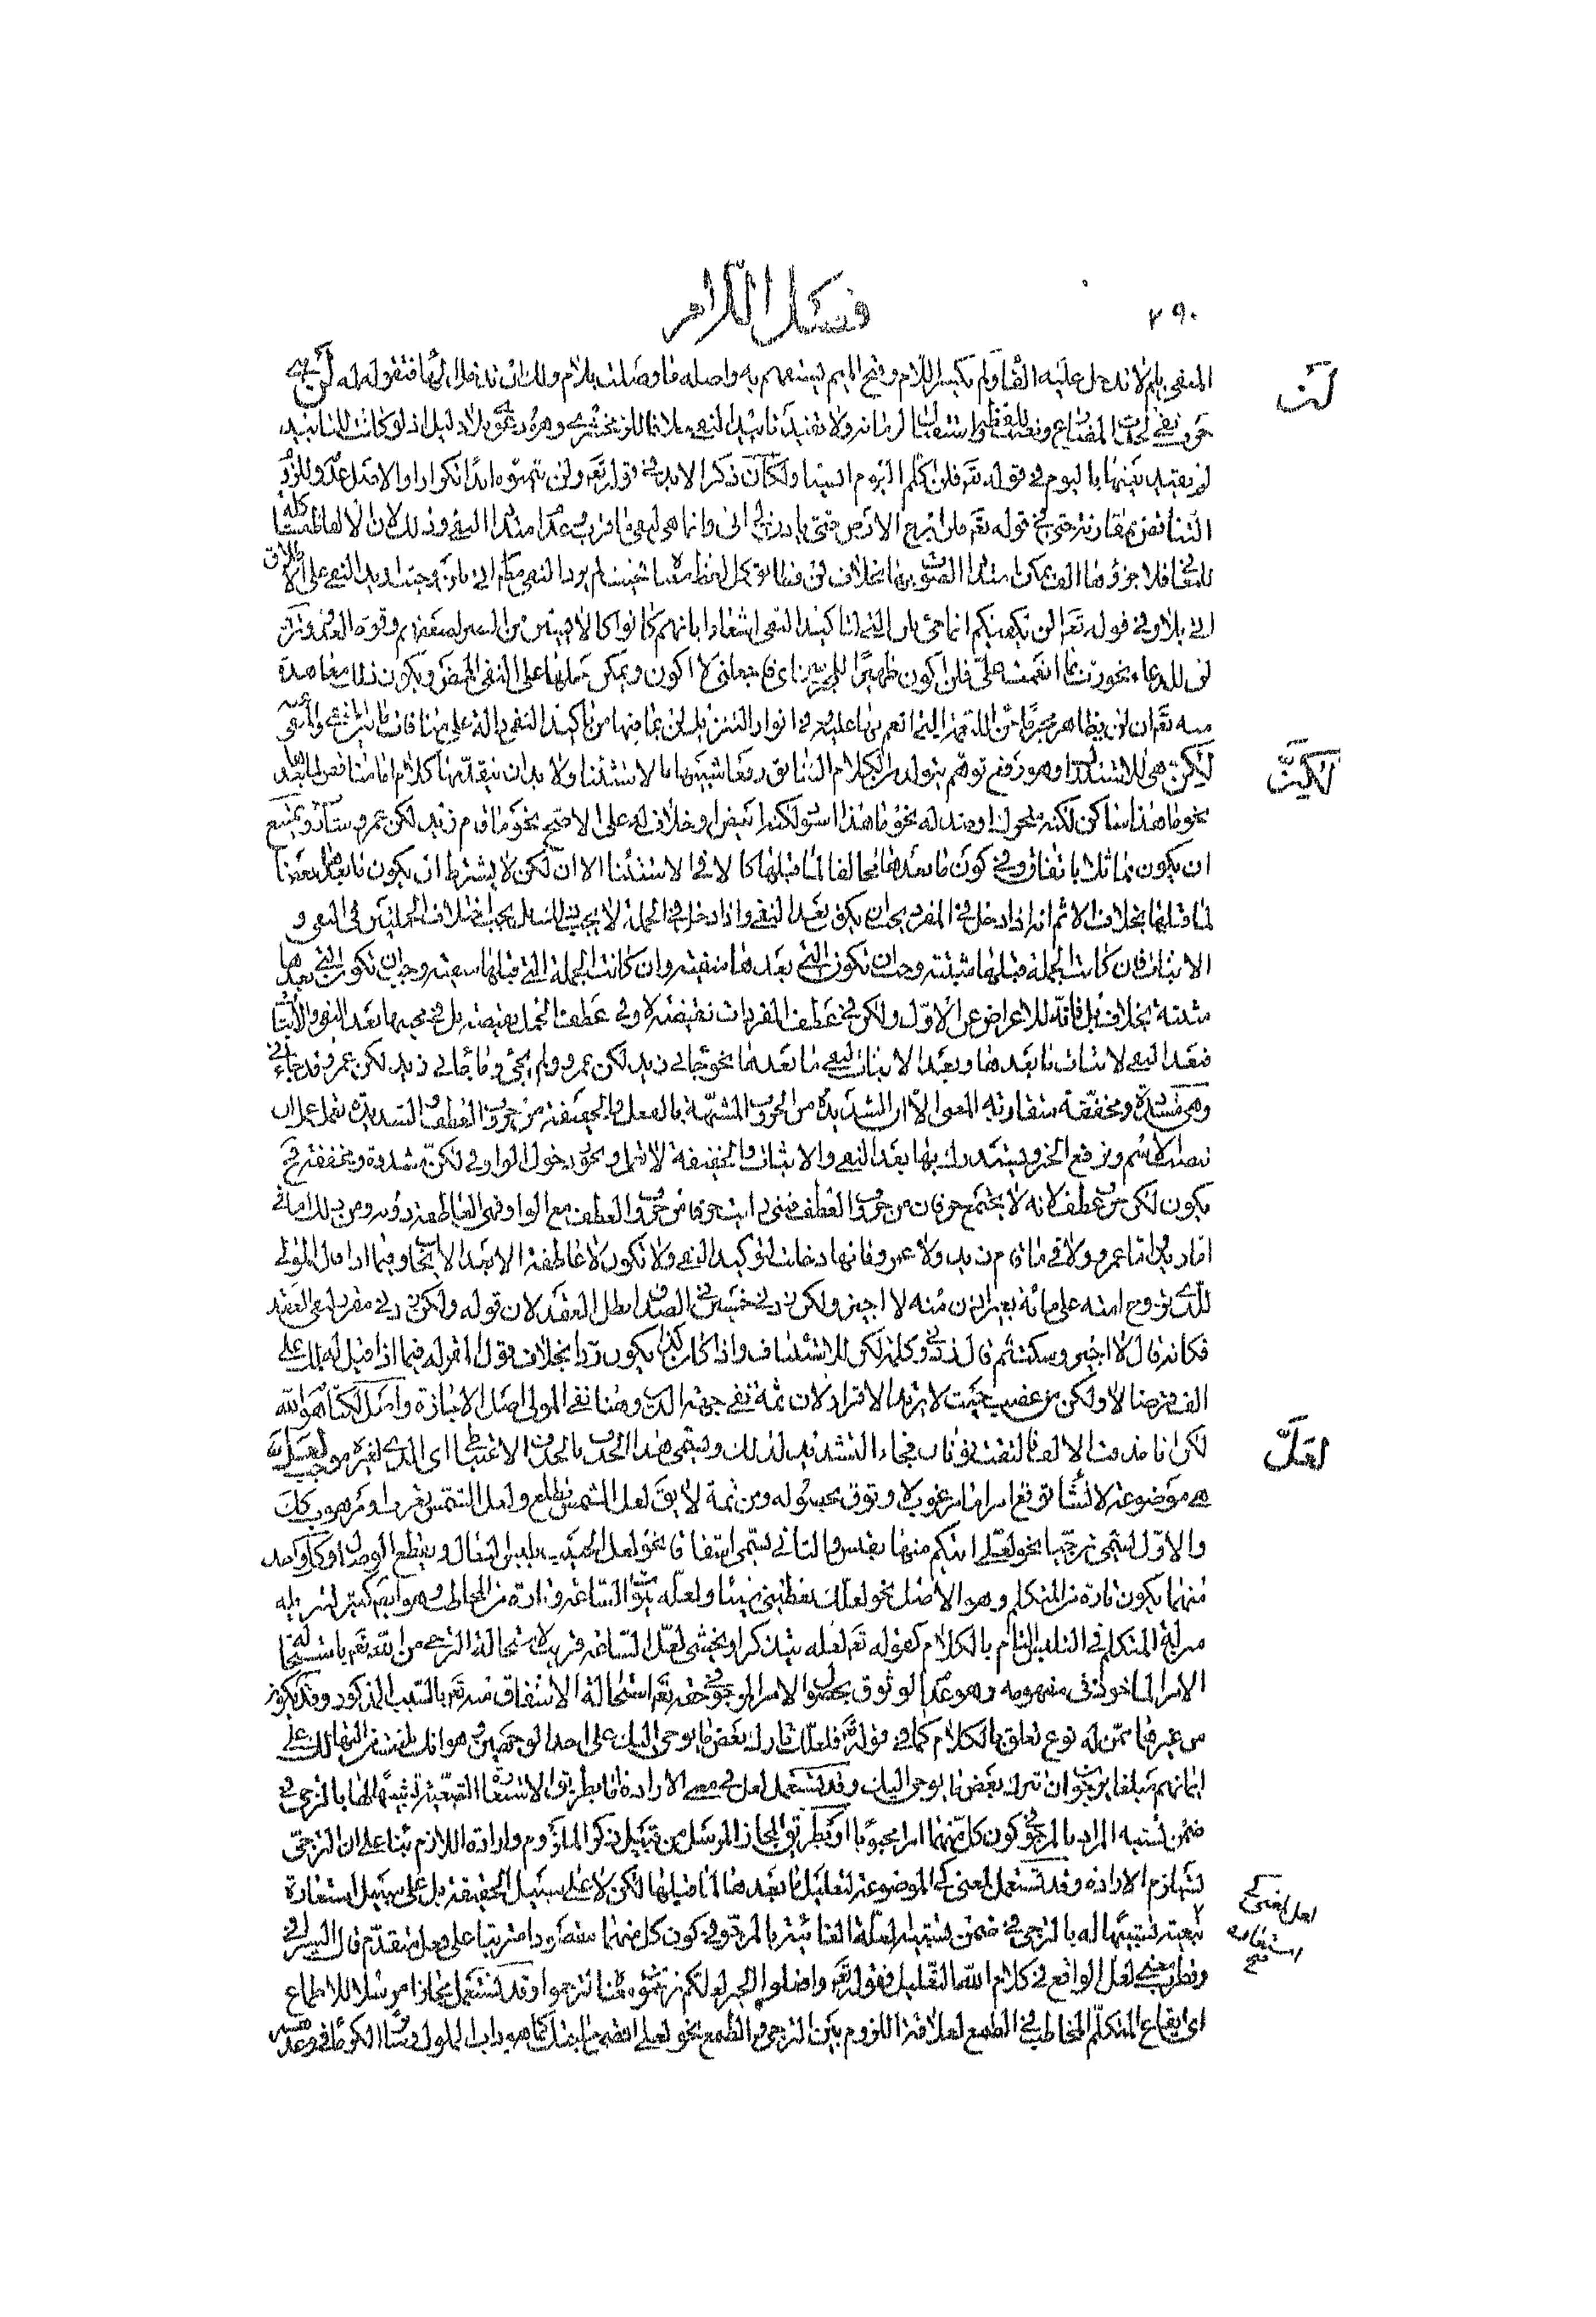 ٢٩٠
فصل اللام
المنفي بلم لا تدخل عليه الفاء ولم بكسر اللام وفتح الميم ليستفهم به واصله ما وصلت بلام ولك ان تدخل الهاء فتقول لمه لن هي
لن
حرف نفي المضارع استقبال ولا تفيد تأييد النفي خلافا للزمخشري وهو دعوى بلا دليل اذ لو كانت للتأبيد
لم يقيد بينها باليوم في قوله تع فلن اكلم اليوم انسيا ولكان ذكر الابد في قوله تع ولن يتمنوه ابدا تكرارا والاصل عدمه وللزم
التناقض بمقارنة حتى في قوله تع فلن ابرح الارض حتى يأذن لي ابي وانما هي لنفي ما قرب وعدم امتداد النفي وذلك لان الالفاظ
للمعاني فلا جزؤها الف يمكن امتداد الصوت بها بخلاف لن فطابق كل لفظ معناه فحيث لم يرد النفي مطلقا اتى بلن وحيث اريد النفي على الاطلاق
اتى بلا وفي قوله تع الن يكفيكم انما جئ بلن التي لتأكيد النفي اشعارا بانهم كانوا كالآيسين من النصر لضعفهم وقوة العدو وتأتي
لن للدعاء نحو رب بما انعمت علي فلن اكون ظهيرا للمجرمين اي فاجعلني لا اكون ويمكن حملها على النفي المحض ويكون ذلك معاهدة
منه تع ان لن يظاهر مجرما
لكن هي للاستدراك وهو رفع توهم يتولد من الكلام السابق رفعا شبيها بالاستثناء ولا بد ان يتقدمها كلام اما مناقض لما بعدها
لكن
نحو ما هذا ساكن لكنه متحرك او ضد له نحو ما هذا اسود لكنه ابيض او خلاف له على الاصح نحو ما قام زيد لكن عمرو شارب ويمتنع
ان يكون مماثلا باتفاق وفي كون ما بعدها مخالفا لما قبلها كالا في الاستثناء الا ان لكن لا يشترط ان يكون ما بعدها بعضا
لما قبلها بخلاف الا ثم انه اذا دخل في المفرد يجب ان يكون بعد النفي واذا دخل في الجملة لا يجب ذلك بل يجب اختلاف الجملتين في النفي و
الاثبات فان كانت الجملة قبلها مثبتة وجب ان تكون التي بعدها منفية وان كانت الجملة التي قبلها منفية وجب ان تكون التي بعدها
مثبتة بخلاف بل فانه للاعراض عن الاول ولكن في عطف المفردات نقيضة لا وفي عطف الجمل نقيضة بل في مجيئها بعد النفي والاثبات
فبعد النفي لاثبات ما بعدها وبعد الاثبات لنفي ما بعدها نحو جاءني زيد لكن عمرو ولم يجئ وما جاءني زيد لكن عمرو قد جاءني
وهي مشددة ومخففة متقاربة المعنى الا ان الشديدة من الحروف المشبهة بالفعل والخفيفة من حروف العطف الشديدة تعمل عمل ان
تنصب الاسم وترفع الخبر ويستدرك بها بعد النفي والاثبات والخفيفة لا تعمل ويجوز دخول الواو في لكن مشددة ومخففة فح
يكون لكن حرف عطف لانه لا يجتمع حرفان من حروف العطف فمتى رأيت حرفا من حروف العطف مع الواو فهي العاطفة دونه ومن ذلك اما في
اما زيد واما عمرو ولا في ما قام زيد ولا عمرو فانها دخلت لتوكيد النفي ولا تكون لا عاطفة الا بعد الايجاب وفيما اذا قال المولى
للذي زوج امته على مائة بغير اذن منه لا اجيز ولكن زدني خمسين في الصداق ابطل العقد لان قوله ولكن زدني مقرر لنفي العقد
فكانه قال لا اجيز وسكت ثم قال زدني وكلمة لكن للاستئناف واذا كان كذا يكون ردا بخلاف قول المقر له فيما اذا قيل له لك علي
الف قرضا لا ولكن من غصب حيث لا يرتد الاقرار لان ثمة نفي جهة الدين وهنا نفي المولى اصل الاجازة واصل لكنا هو الله
لكن انا حذفت الالف فالتقت نونان فجاء التشديد لذلك
لعل
هي موضوعة لانشاء توقع امر اما مرغوب لا وثوق بحصوله ومن ثمة لا يق لعل الشمس تطلع ولعل الشمس تغرب او مرهوب كذلك
والاول يسمى ترجيا نحو لعلي اتيكم منها بقبس والثاني يسمى اشفاقا نحو لعل الحبيب يلبس النعال ويقطع الوصال وكل واحد
منهما يكون تارة من المتكلم وهو الاصل نحو لعلك تعطيني شيئا ولعله يموت الساعة وتارة من المخاطب وهو ايضا كثير لتنزيله
منزلة المتكلم في التلبس التام بالكلام كقوله تع لعله يتذكر او يخشى لعل الساعة قريب لاستحالة الترجي من الله تع
الامر المأخوذ في مفهومه وهو عدم الوثوق بحصول الامر المرجو في حقه تع استحالة الاشفاق منه تع بالسبب المذكور وقد يكون
من غيرهما ممن له نوع تعلق بالكلام كما في قوله تع فلعلك تارك بعض ما يوحى اليك على احد الوجهين وهو انك بلغت من التهالك على
ايمانهم مبلغا يرجون ان تترك بعض ما يوحى اليك وقد تستعمل لعل في معنى الارادة اما بطريق الاستعارة التبعية تشبيها لها بالترجي في
ضمن تشبيه المراد بالمرجو في كون كل منهما امرا محبوبا او بطريق المجاز المرسل من قبيل ذكر الملزوم وارادة اللازم بناء على ان الترجي
يستلزم الارادة وقد تستعمل لمعنى كي الموضوعة لتعليل ما بعدها لما قبلها لكن لا على سبيل الحقيقة بل على سبيل استعارة
تبعية تشبيها له بالترجي في ضمن تشبيه العلة الغائية بالمرجو في كون كل منهما مقصودا مترتبا على فعل متقدم قال اليسر في
وقطرب معنى لعل الواقع في كلام الله التعليل فقوله تع وافعلوا الخير لعلكم ترحموه معنا لترحموا وقد تستعمل مجازا مرسلا للاطماع
اي ايقاع المتكلم المخاطب في الطمع لعلاقة اللزوم بين الترجي والطمع نحو لعلي اقضي حاجتك كما هو دأب الملوك وسائر الكرماء في وعد
لعل بمعنى كي
استعارة